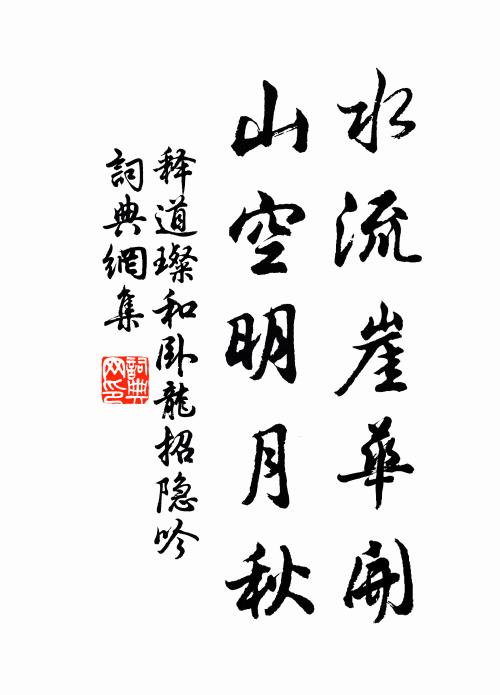 水流崖華開
山空明月秋
释道璨和卧龍招隐吟
詞典網集
詞典網印